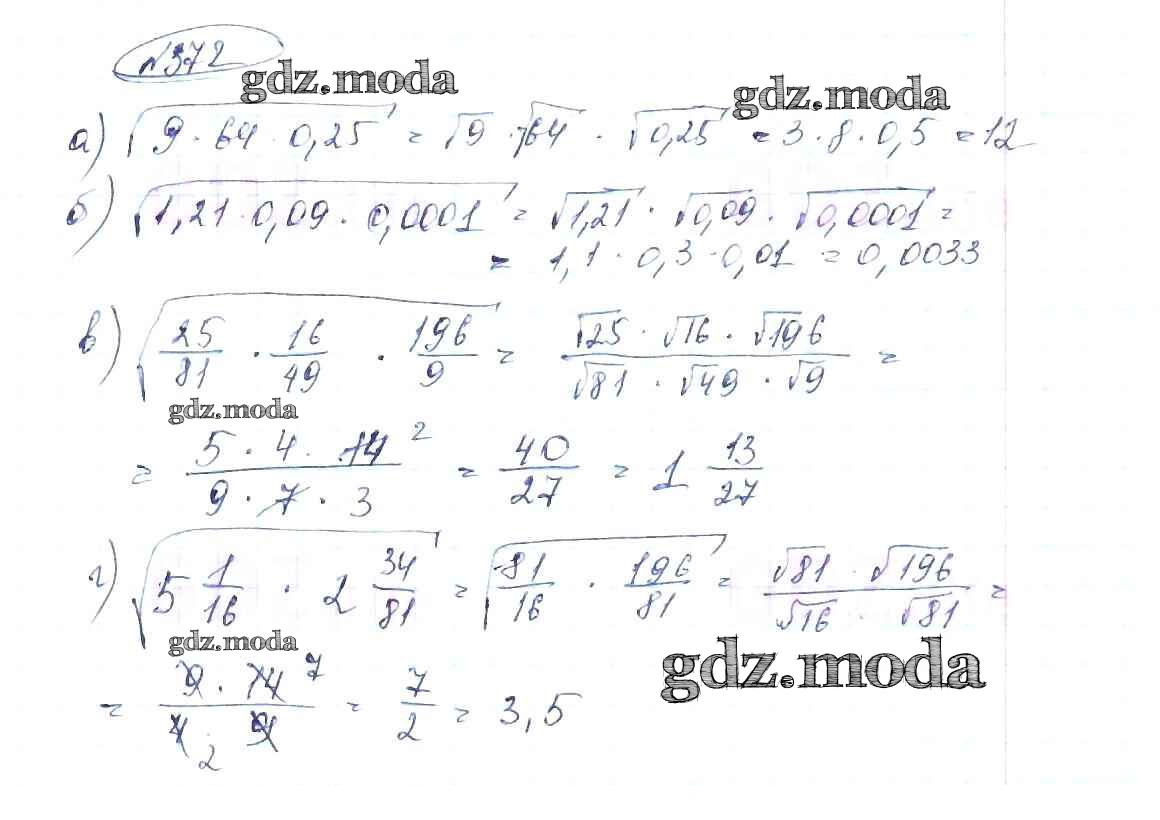 №372
gdz.moda
gdz.moda
а) √(9 · 64 · 0,25) = √9 · √64 · √0,25 = 3 · 8 · 0,5 = 12
б) √(1,21 · 0,09 · 0,0001) = √1,21 · √0,09 · √0,0001 =
= 1,1 · 0,3 · 0,01 = 0,0033
в) √(25/81 · 16/49 · 196/9) = (√25 · √16 · √196)/(√81 · √49 · √9) =
gdz.moda
= (5 · 4 · 14 2)/(9 · 7 · 3) = 40/27 = 1 13/27
г) √(5 1/16 · 2 34/81) = √(81/16 · 196/81) = (√81 · √196)/(√16 · √81) =
gdz.moda
gdz.moda
= (9 · 14 7)/(4 2 · 9) = 7/2 = 3,5